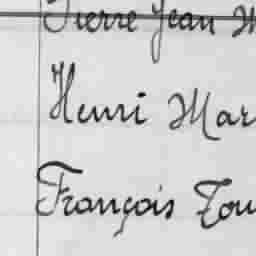 Pierre Jean M
Henri Mar
François Tou